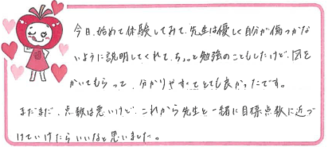 今日、始めて体験してみて、先生は優しく自分が傷つかない
ように説明してくれて、ちょっと勉強のこともしたけど、図を
かいてもらって、分かりやすくてとても良かったです。
まだまだ、点数は悪いけど、これから先生と一緒に目標点数に近づ
けていけたらいいなと思いました。